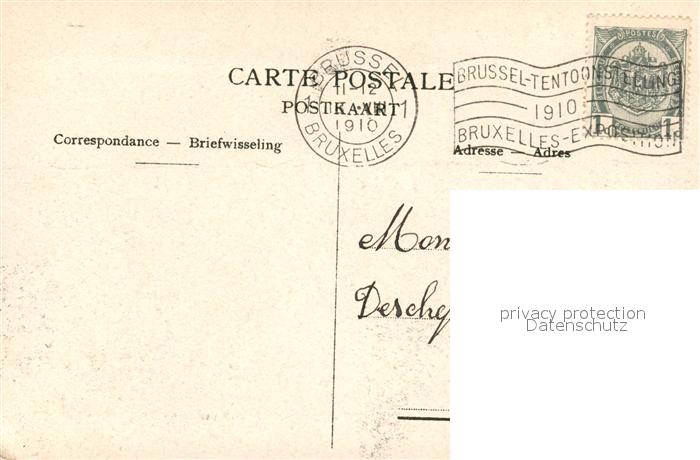 CARTE POSTALE
POSTKAART
Correspondance — Briefwisseling
BRUSSEL
11-12
1910
BRUXELLES
BRUSSEL-TENTOONSTELLING
1910
BRUXELLES-EXPOSITION
POSTES
1 1
Adresse — Adres
Mon
Deschep
privacy protection
Datenschutz